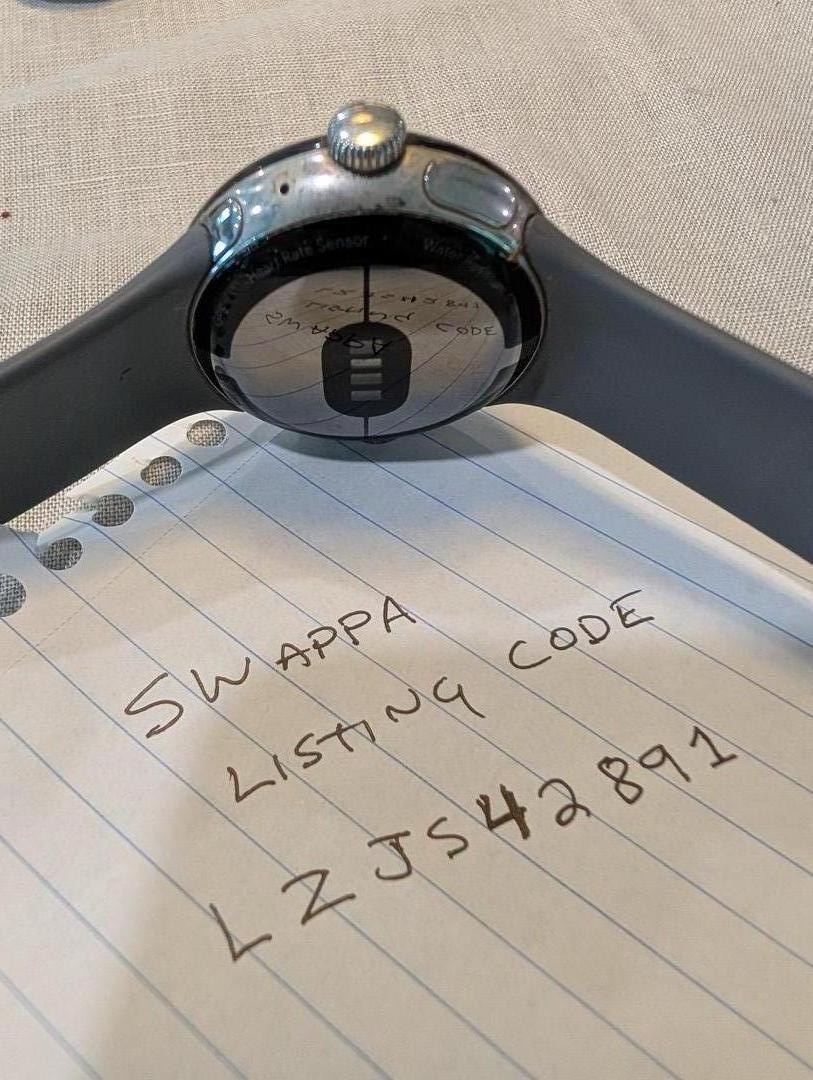 Heart Rate Sensor
Water
SWAPPA
LISTING CODE
LZJS42891